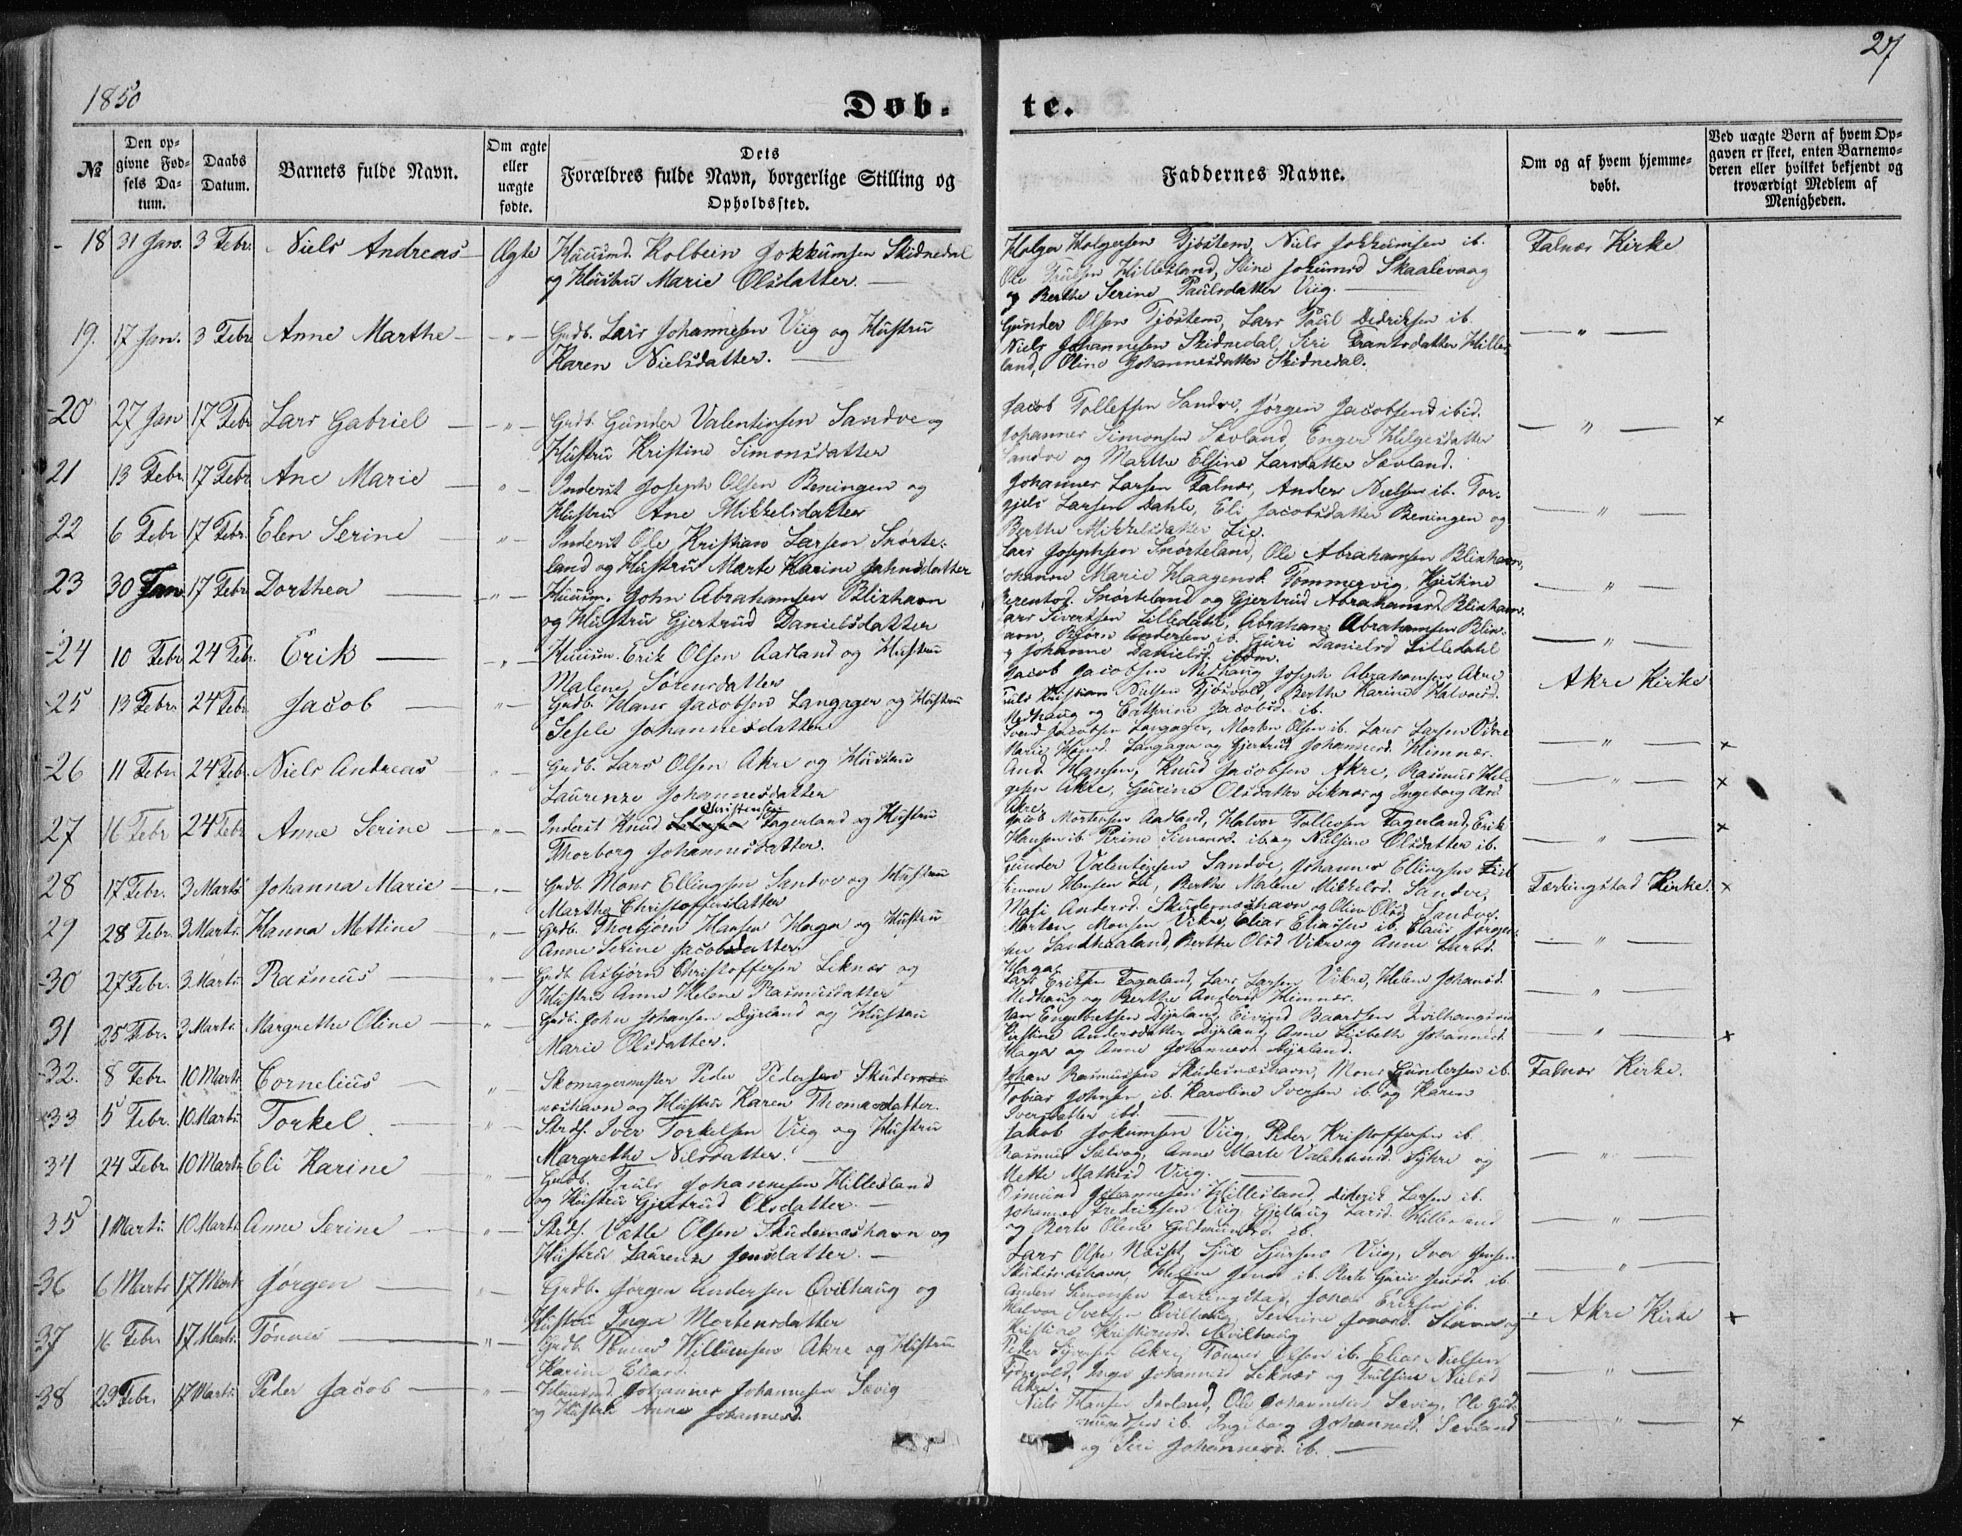 1850
Døb-
te.
27
№
Den opgivne Fødsels Datum.
Daabs Datum.
Barnets fulde Navn.
Om ægte eller uægte fødte.
Dets
Forældres fulde Navn, borgerlige Stilling og
Opholdssted.
Faddernes Navne.
Om og af hvem hjemmedøbt.
Ved uægte Børn af hvem Opgaven er skeet, enten Barnemoderen eller hvilket bekjendt og troværdigt Medlem af Menigheden.
18 31 Jan. 3 Febr. Niels Andreas Ægte Huusmd. Kolbein Jokkumsen Skidnedal
og Hustru Marie Olsdatter.
Holger Holgersen Tjøstem, Niels Jokkumsen ib.
Hillesland, Stine Skaalevaag
og Berthe Serine Paulsdatter Viig.
Falnæs Kirke
19. 17 Jan. 3 Febr Anne Marthe - " - Grdb. Lars Johannesen Viig og Hustru
Karen Nielsdatter.
Gunder Olsen Tjøstem, Lars Paul Didriksen ib.
Niels Johannesen Skidnedal, Siri Hilles
land, Oline Johannesdatter Skidnedal.
— " —
20 27 Jan 17 Febr Lars Gabriel - " - Grdb. Gunder Valentinsen Sandve og
Hustru Kristine Simonsdatter
Jacob Tollefsen Sandve, Jørgen Jacobsen ibid.
Johannes Simonsen Sævland, Enger Helgesdatter
Sandve og Marthe Elsine Larsdatter Sævland.
— " — ×
21 13 Febr. 17 Febr. Ane Marie - " - Inderst Joseph Olsen Beningen og
Hustru Ane Mikkelsdatter
Johannes Larsen Falnæs, Anders Nielsen ib. Tor-
Larsen Dahle, Eli Jacobsdatter Beningen og
Berthe Mikkelsdatter Lie.
— " —
22 6 Febr 17 Febr. Elen Serine - " - Inderst Ole Kristian Larsen Snørte-
land og Hustru Marte Karine Jahnsdatter
Lars Josephsen Snørteland, Ole Abrahamsen Blixhavn,
Johanne Marie Haagensd. Tommervig, Kjistine
Snørteland og Gjertrud Abrahamsd. Blixhavn.
— " —
23 30 Jan 17 Febr Dorthea - " - Huusm. John Abrahamsen Blixhavn
og Hustru Gjertrud Danielsdatter
Lars Sivertsen Lilledahl, Abraham Abrahamsen Blix-
avn, Bjørn Andersen ib. Guri Danielsd Lilledahl
og Johanne Danielsd. ibdm.
— " —
24 10 Febr 24 Febr. Erik - " - Huusm. Erik Olsen Aadland og Hustru
Malene Sørensdatter
Jacob Jacobsen Medhaug Joseph Abrahamsen Akre
Kristian Nielsen Tjøsvold, Berthe Karine Halvorsd.
Medhaug og Cathrine Jacobsd. ib.
Akre Kirke
25 13 Febr. 24 Febr Jacob - " - Grdb. Hans Jacobsen Langager og Hustru
Sesele Johannesdatter
Svend Jacobsen Langager, Morten Olsen ib. Lars Larsen
Marie Langager og Gjertrud Johannesd. Himnær.
— " — ×
26 11 Febr. 24 Feb. Niels Andreas - " - Grdb. Lars Olsen Akre og Hustru
Laurenze Johannesdatter
And. Hansen, Knud Jacobsen Akre, Rasmus Hel-
gesen Akre, Gurine Olsdatter Liknæs og Ingeborg Olsd
Akre.
— " — ×
27 16 Febr 24 Febr Anne Serine - " - Inderst Knud Christensen Fagerland og Hustru
Thorborg Johannesdatter.
Jacob Mortensen Aadland, Halvor Tollevsen Fagerland, Erik
Hansen ib. Perine Simonsd. ib. og Nielsine Olsdatter ib.
— " — ×
28 17 Febr. 3 Marts Johanna Marie - " - Grdb. Mons Ellingsen Sandve og Hustru
Martha Christoffersdatter
Gunder Valentinsen Sandve, Johannes Ellingsen
Simon Hansen Li, Berthe Malene Mikkelsd. Sandve,
Mari Andersd. Skudesnæshavn og Oline Olsd Sandve.
Færkingstad Kirke. ×
29 28 Febr. 3 Marts. Hanna Mettine - " - Grdb. Thorbjørn Hansen Haga og Hustru
Anne Serine Jacobsdatter.
Morten Monsen Vikre, Elias Eliassen ib. Claus Jørgen-
sen Sandhaaland, Berthe Olsd Vikre og Anne Larsd.
Haga.
— " —
30 27 Febr. 3 Marts. Rasmus - " - Grdb. Asbjørn Christoffersen Liknæs og
Hustru Anne Helene Rasmusdatter
Lars Eriksen Fagerland, Lars Larsen Vikre, Helene Johansd.
Medhaug og Berthe Andersd Himnær.
— " —
31 25 Febr. 3 Marts. Margrethe Oline - " - Grdb. John Johansen Dyrland og Hustru
Marie Olsdatter.
Engelbretsen Dyrland, Eivind Baardsen
Kirstine Andersdatter Dyrland, Anne Lisbeth Johannesd.
Haga og Anne Johannesd. Dyrland.
— " — ×
32. 8 Febr. 10 Marts Cornelius " Skomagermester Peder Pedersen Skudes-
næshavn og Hustru Karen Thomasdatter.
Johan Rasmussen Skudesnæshavn, Mons Gundersen ib.
Tobias Johnsen ib. Karoline Iversen ib. og Karen
Iversdatter ibd.
Falnæs Kirke.
33 5 Febr. 10 Marts. Torkel. - " - Strds. Iver Torkelsen Viig og Hustru
Margrethe Nilsdatter.
Jakob Jokumsen Viig, Peder Kristoffersen ib.
Rasmus Salvog, Anne Marte Valentind. Syre og
Mette Mathisd Viig.
— " —
34 24 Febr. 10 Marts Eli Karine - " - Grdb. Truls Johannesen Hillesland
og Hustru Gjertrud Olsdatter.
Osmund Johannesen Hillesland, Diderik Larsen ib.
Johannes Fredriksen Viig, Gjellaug Larsd. Hillesland
og Berte Olene Gudmundsd. ib.
— " —
35 1 Marts. 10 Marts Anne Serine - " - Strds. Vætle Olsen Skudesnæshavn og
Hustru Laurenze Jensdatter.
Lars Olsen Naust, Sjur Sjursen Viig, Iver Jensen
Skudesnæshavn, Helene Jensd ib. Berte Gurie Jensd. ib.
— " —
36 6 Marts 17 Marts Jørgen - " - Grdb. Jørgen Andersen Qvilhaug og
Hustru Inger Mortensdatter
Anders Simonsen Færkingstad, Jonas Eriksen ib.
Halvor Qvilhaug, Severine Stavne og
Kristine Kristiensd. Qvilhaug
Akre Kirke ×
37 16 Febr. 17 Marts. Tønnes - " - Grdb. Tønnes Willumsen Akre og Hustru
Karine Eliasd.
Peder Akre, Tønnes Olsen ib. Elias Nielsen
Tjøsvold, Inger Johannesd Liknæs og Nielsd
Akre.
— " —
38 23 Febr. 17 Marts. Peder Jacob - " - Huusmd. Johannes Johannesen Sævig
og Hustru Anne Johannesd.
Niels Hansen Sævland, Ole Johannesen Sævig, Ole Gud-
mundsen ib. Ingeborg Johannesd. Sævland
og Siri Johannesd. ib.
— " — ×